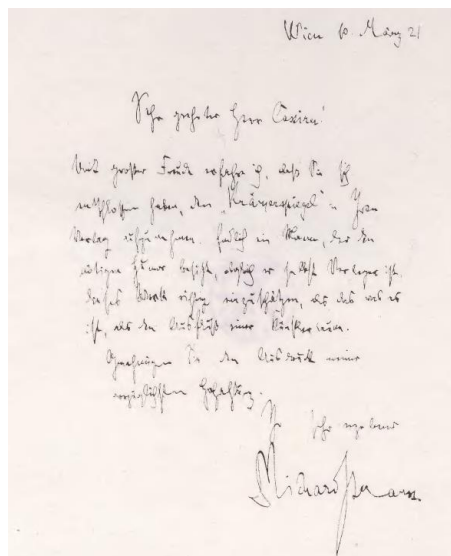 Wien 10. März 21
Sehr geehrter Herr Cassirer!
Mit großer Freude erfahre ich, daß Sie sich
entschlossen haben, den „Krämerspiegel" in Ihren
Verlag aufzunehmen. Endlich ein Mann, der den
nötigen Humor besitzt, obgleich er selbst Verleger ist,
dieses Werk richtig einzuschätzen, als das was es
ist, als den Ausfluß einer Künstlerlaune.
Genehmigen Sie den Ausdruck meiner
vorzüglichsten Hochachtung.
Ihr sehr ergebener
Richard Strauss.